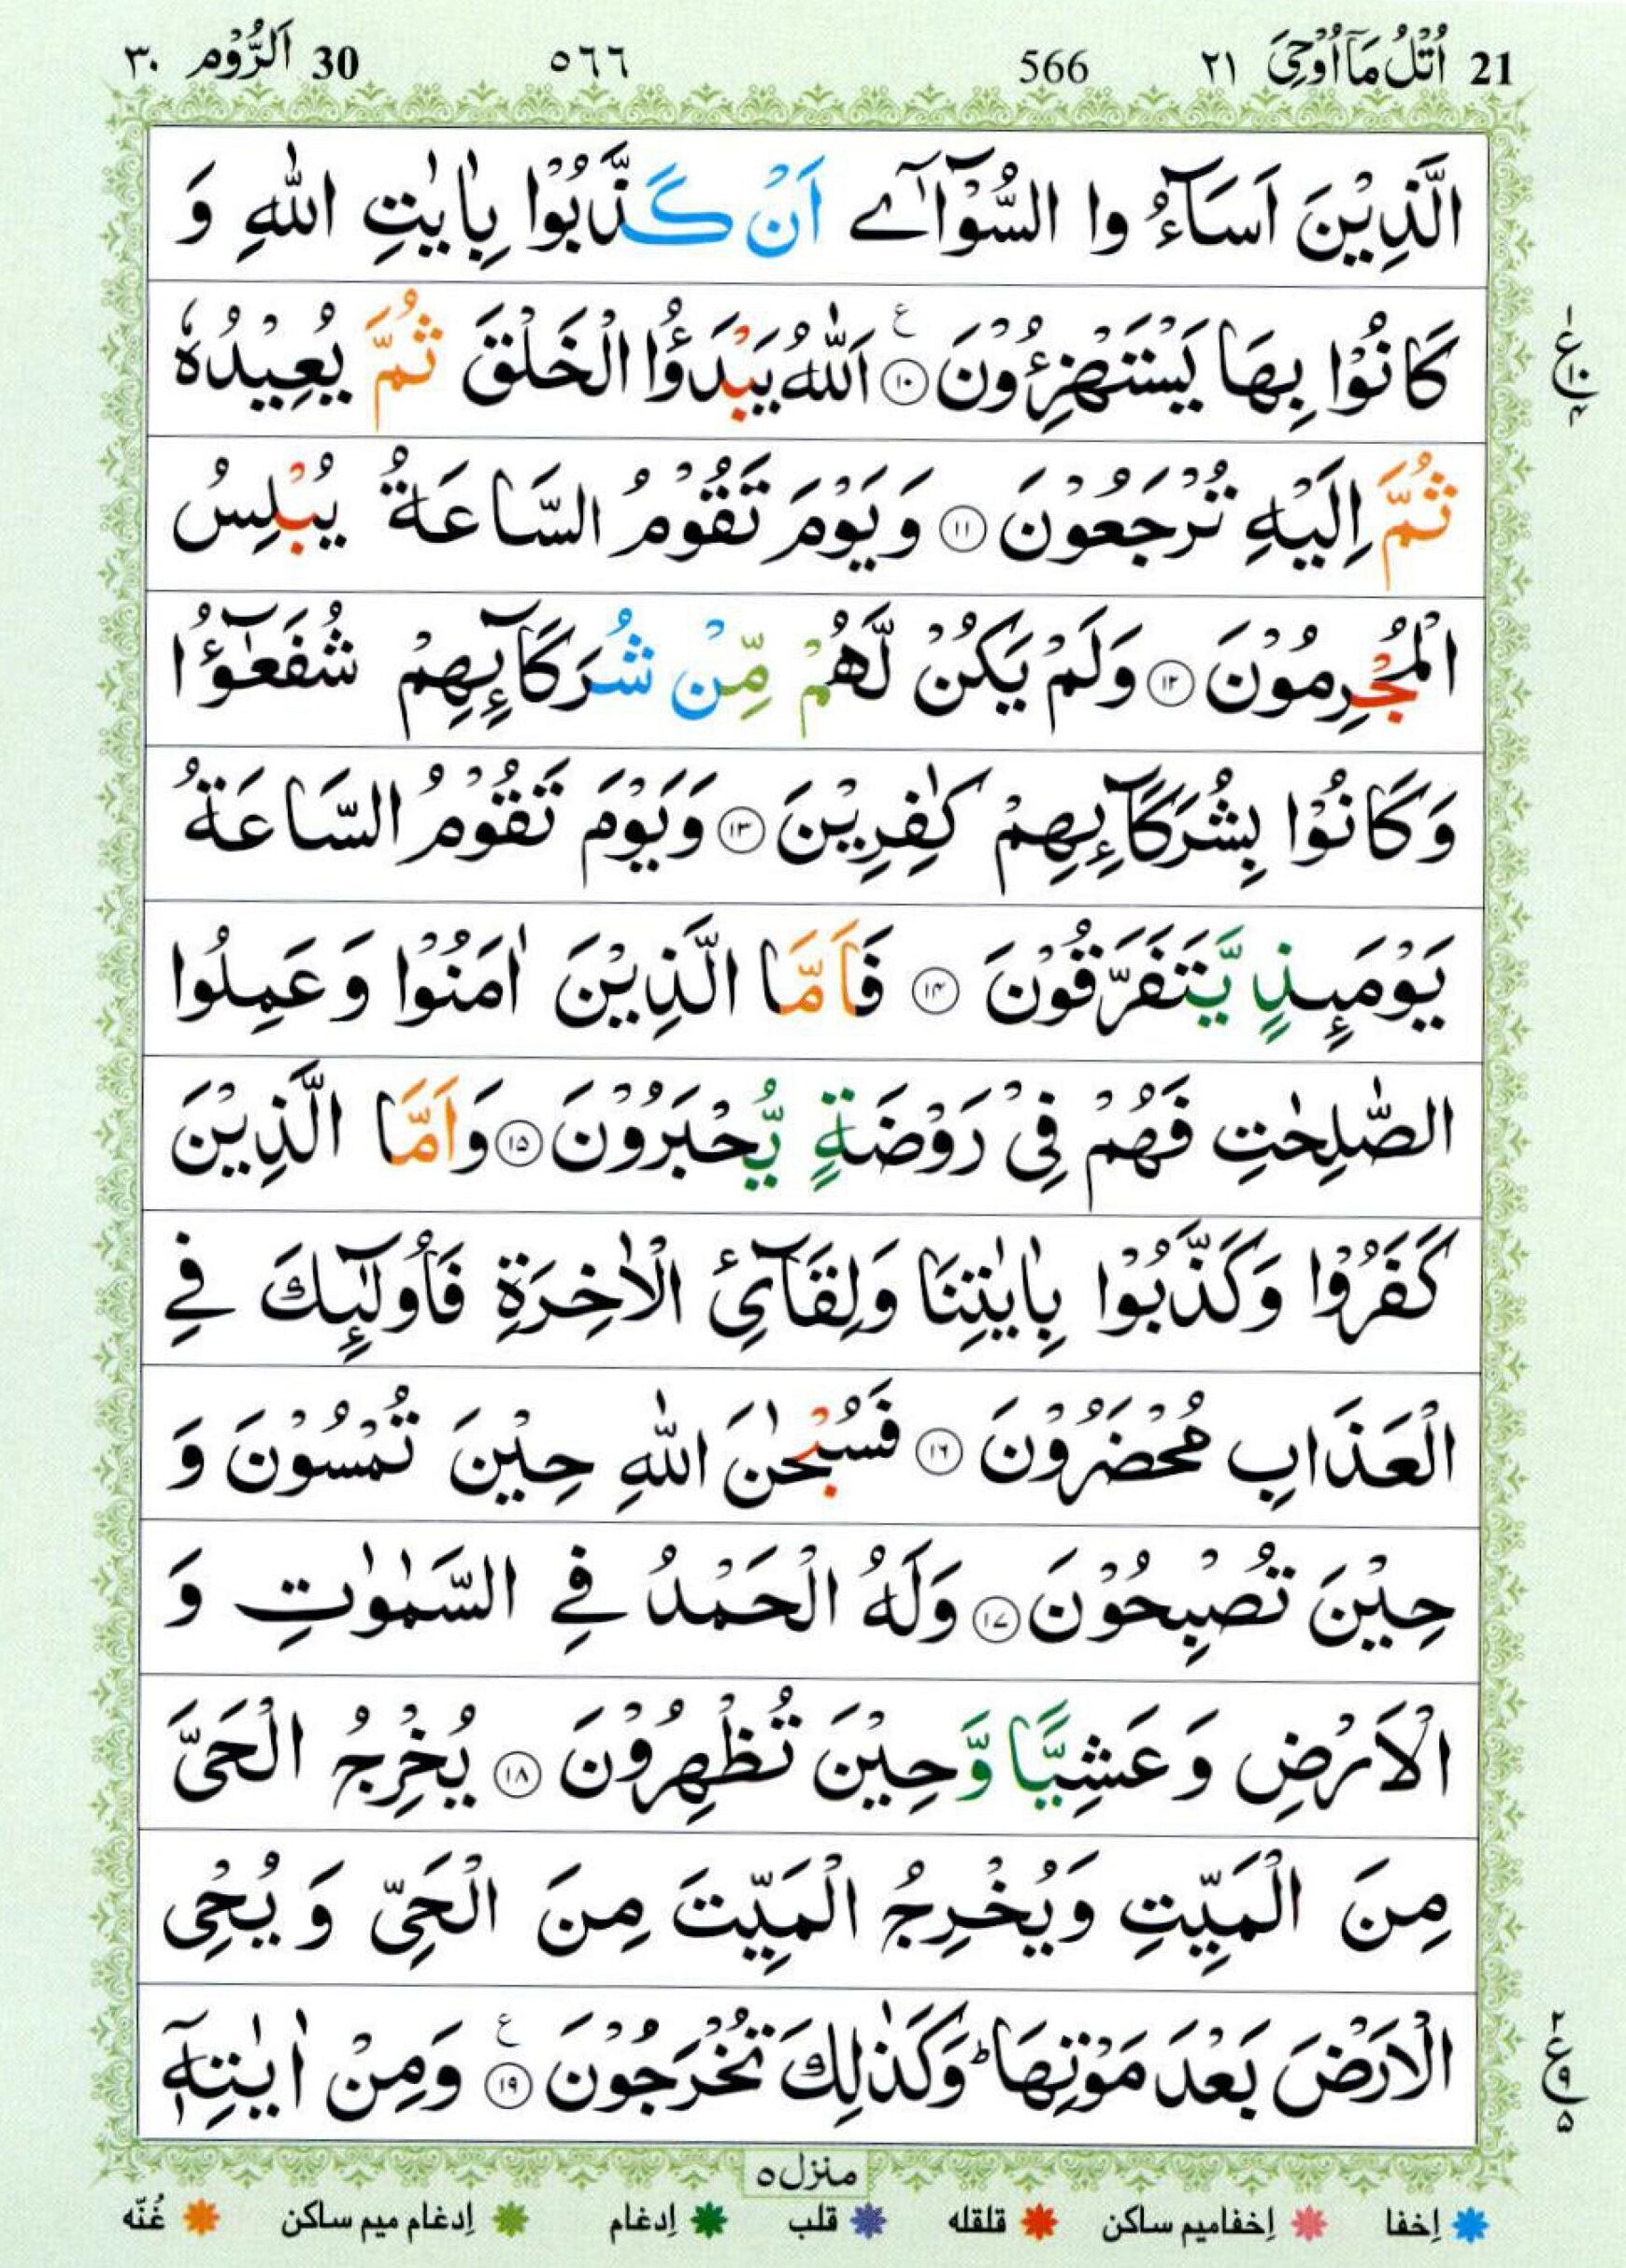 21 اُتْلُ مَاۤ اُوْحِیَ ٢١ 566 ٥٦٦ 30 اَلرُّوْم ٣٠
الَّذِیْنَ اَسَآءُوا السُّوْٓاٰۤی اَنْ كَذَّبُوْا بِاٰیٰتِ اللّٰهِ وَ
كَانُوْا بِهَا یَسْتَهْزِءُوْنَ ۧ۝۱۰ اَللّٰهُ یَبْدَؤُا الْخَلْقَ ثُمَّ یُعِیْدُهٗ
ع ١ ١٠ ٤
ثُمَّ اِلَیْهِ تُرْجَعُوْنَ ۝۱۱ وَیَوْمَ تَقُوْمُ السَّاعَةُ یُبْلِسُ
الْمُجْرِمُوْنَ ۝۱۲ وَلَمْ یَكُنْ لَّهُمْ مِّنْ شُرَكَآىِٕهِمْ شُفَعٰٓؤُا
وَكَانُوْا بِشُرَكَآىِٕهِمْ كٰفِرِیْنَ ۝۱۳ وَیَوْمَ تَقُوْمُ السَّاعَةُ
یَوْمَىِٕذٍ یَّتَفَرَّقُوْنَ ۝۱۴ فَاَمَّا الَّذِیْنَ اٰمَنُوْا وَعَمِلُوا
الصّٰلِحٰتِ فَهُمْ فِیْ رَوْضَةٍ یُّحْبَرُوْنَ ۝۱۵ وَاَمَّا الَّذِیْنَ
كَفَرُوْا وَكَذَّبُوْا بِاٰیٰتِنَا وَلِقَآئِ الْاٰخِرَةِ فَاُولٰٓىِٕكَ فِی
الْعَذَابِ مُحْضَرُوْنَ ۝۱۶ فَسُبْحٰنَ اللّٰهِ حِیْنَ تُمْسُوْنَ وَ
حِیْنَ تُصْبِحُوْنَ ۝۱۷ وَلَهُ الْحَمْدُ فِی السَّمٰوٰتِ وَ
الْاَرْضِ وَعَشِیًّا وَّحِیْنَ تُظْهِرُوْنَ ۝۱۸ یُخْرِجُ الْحَیَّ
مِنَ الْمَیِّتِ وَیُخْرِجُ الْمَیِّتَ مِنَ الْحَیِّ وَیُحْیِ
الْاَرْضَ بَعْدَ مَوْتِهَا ؕ وَكَذٰلِكَ تُخْرَجُوْنَ ۧ۝۱۹ وَمِنْ اٰیٰتِهٖۤ
ع ٢ ٩ ٥
منزل ٥
اِخفا اِخفامیم ساکن قلقله قلب اِدغام اِدغام میم ساکن غُنّه